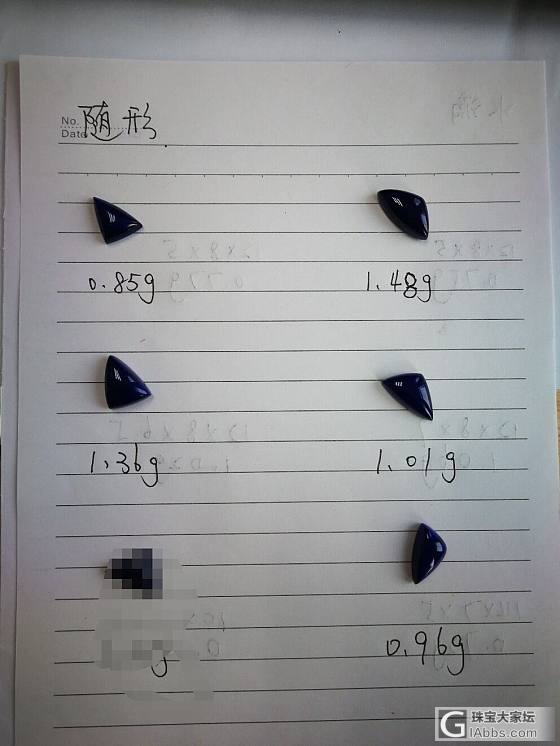 No. 随形
Date
0.85g 1.48g
1.36g 1.01g
0.96g
珠宝大家坛
GIAbbs.com